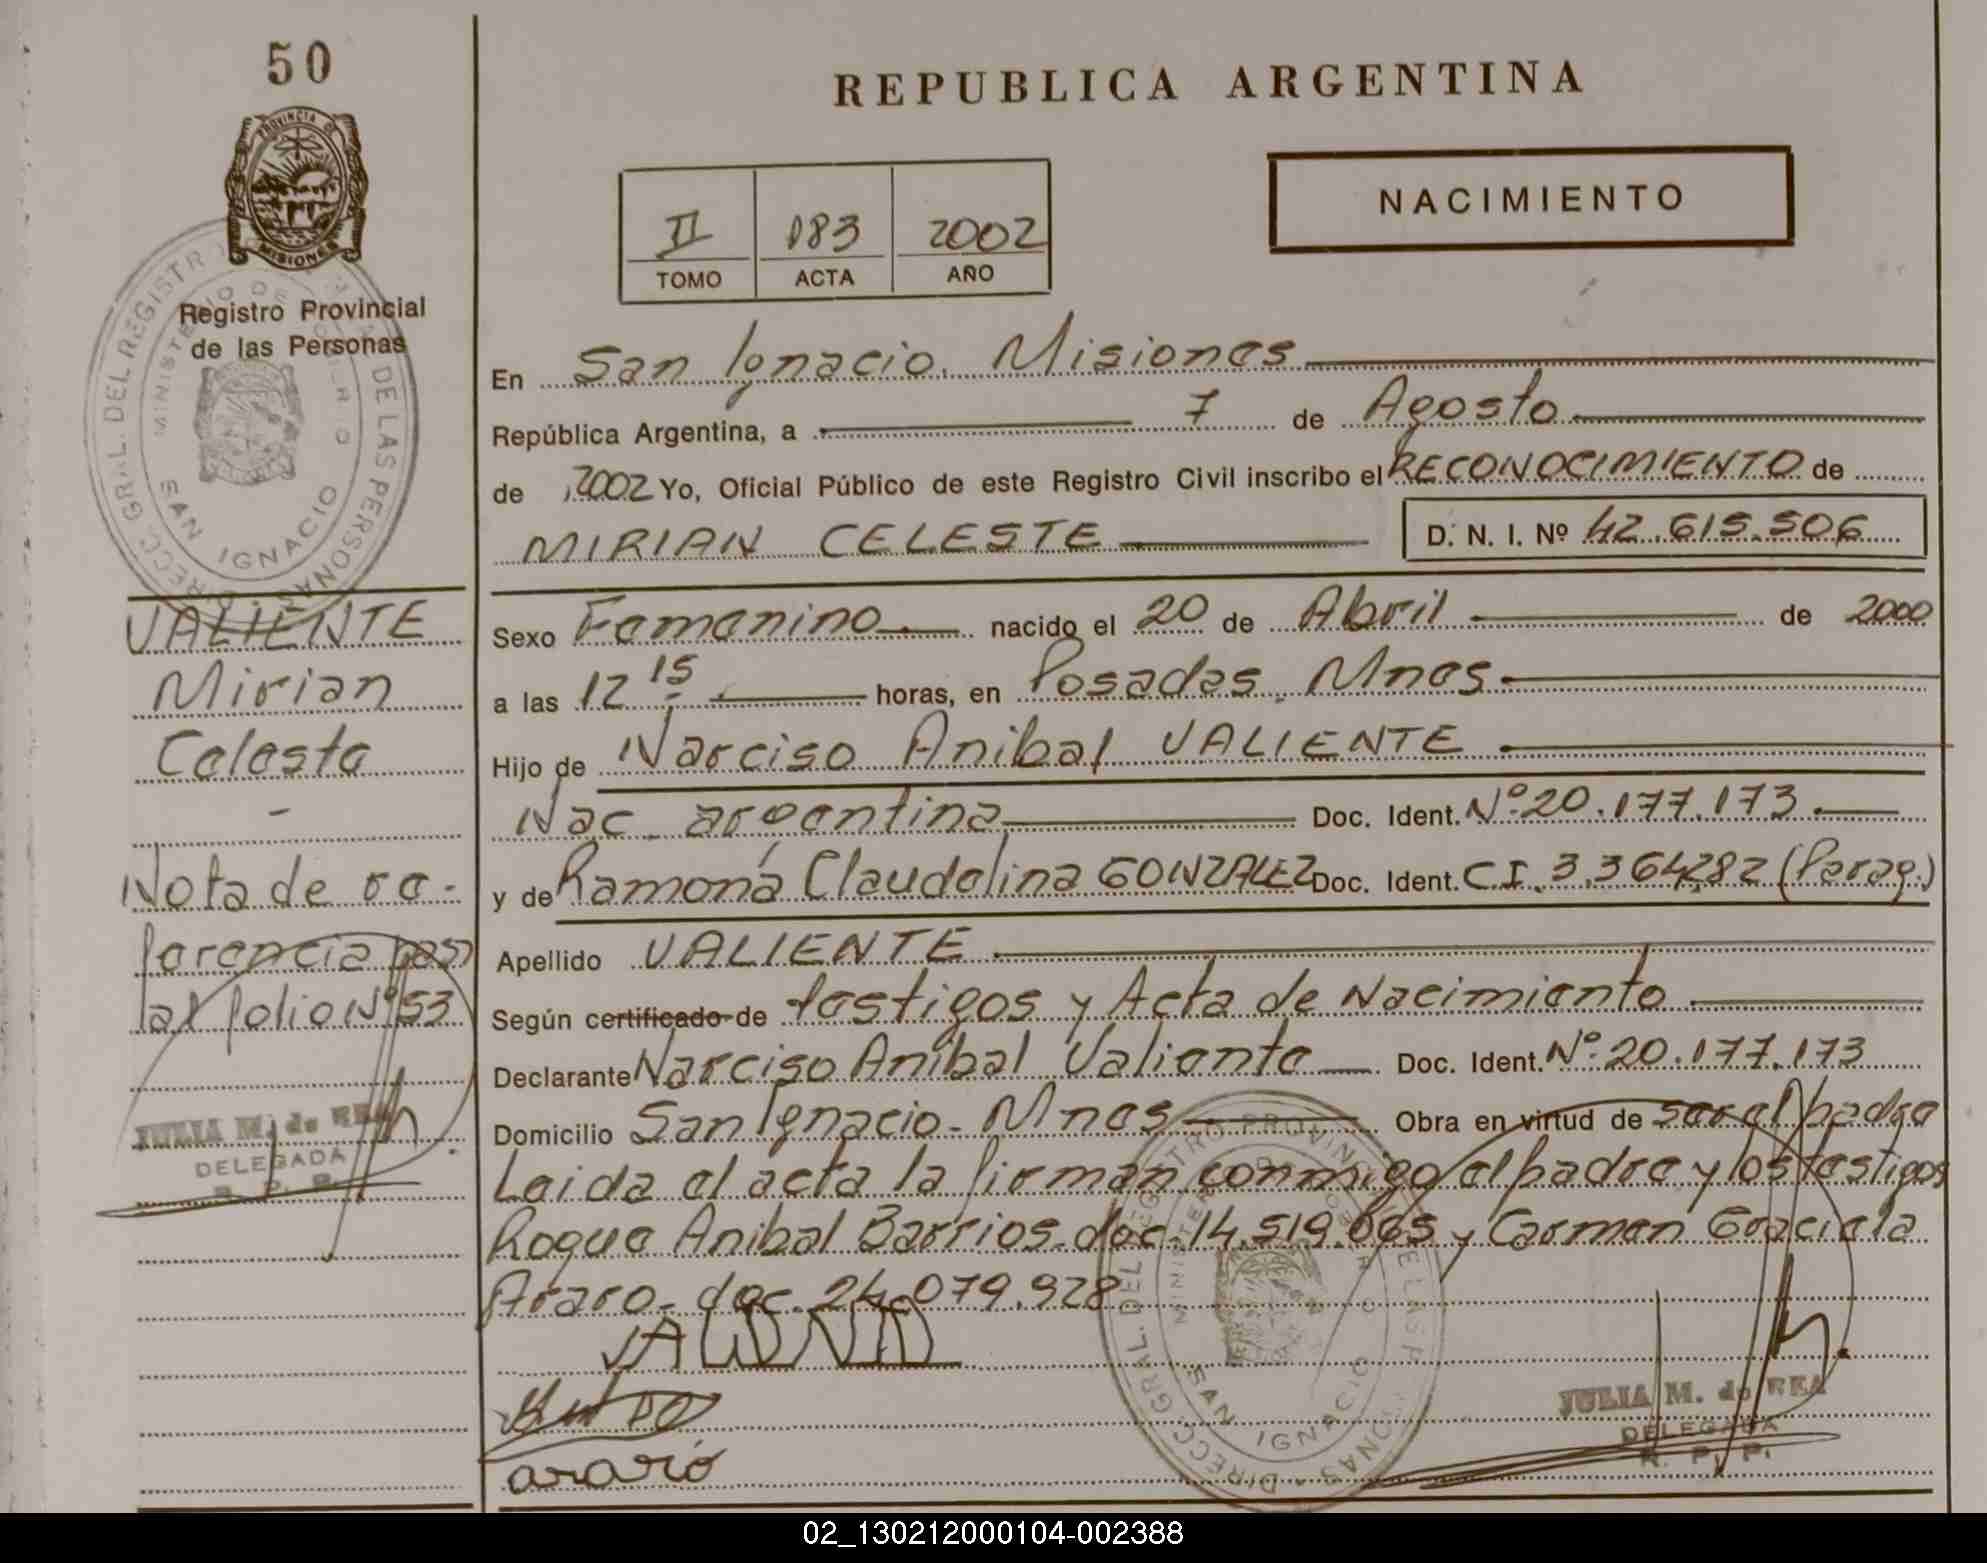 50
REPUBLICA ARGENTINA
PROVINCIA DE
MISIONES
NACIMIENTO
II 083 2002
TOMO ACTA AÑO
Registro Provincial
de las Personas
DIRECC. GRAL. DEL REGISTRO DE LAS PERSONAS
MINISTERIO DE GOBIERNO
SAN IGNACIO
En San Ignacio. Misiones
República Argentina, a 7 de Agosto
de 2002 Yo, Oficial Público de este Registro Civil inscribo el RECONOCIMIENTO de
MIRIAN CELESTE D. N. I. Nº 42.615.506
Sexo Femenino nacido el 20 de Abril de 2000
a las 12 15 horas, en Posadas. Mnes
Hijo de Narciso Anibal VALIENTE
Nac. argentina Doc. Ident. Nº 20.177.173
y de Ramona Claudelina GONZALEZ Doc. Ident. C.I. 3.364.282 (Parag.)
Apellido VALIENTE
Según certificado de testigos y Acta de Nacimiento
Declarante Narciso Anibal Valiente Doc. Ident. Nº 20.177.173
Domicilio San Ignacio - Mnes Obra en virtud de ser el padre
Leida el acta la firman conmigo el padre y los testigos
Roque Anibal Barrios doc. 14.519.665 y Carmen Graciela
Araro - doc. 24.079.928
araró
JULIA M. de REA
DELEGADA
R. P. P.
VALIENTE
Mirian
Celeste
-
Nota de re-
ferencia pasa
al folio Nº 53
JULIA M. de REA
DELEGADA
R. P. P.
DIRECC. GRAL. DEL REGISTRO PROVINCIAL DE LAS PERSONAS
MINISTERIO DE GOBIERNO
SAN IGNACIO
02_130212000104-002388